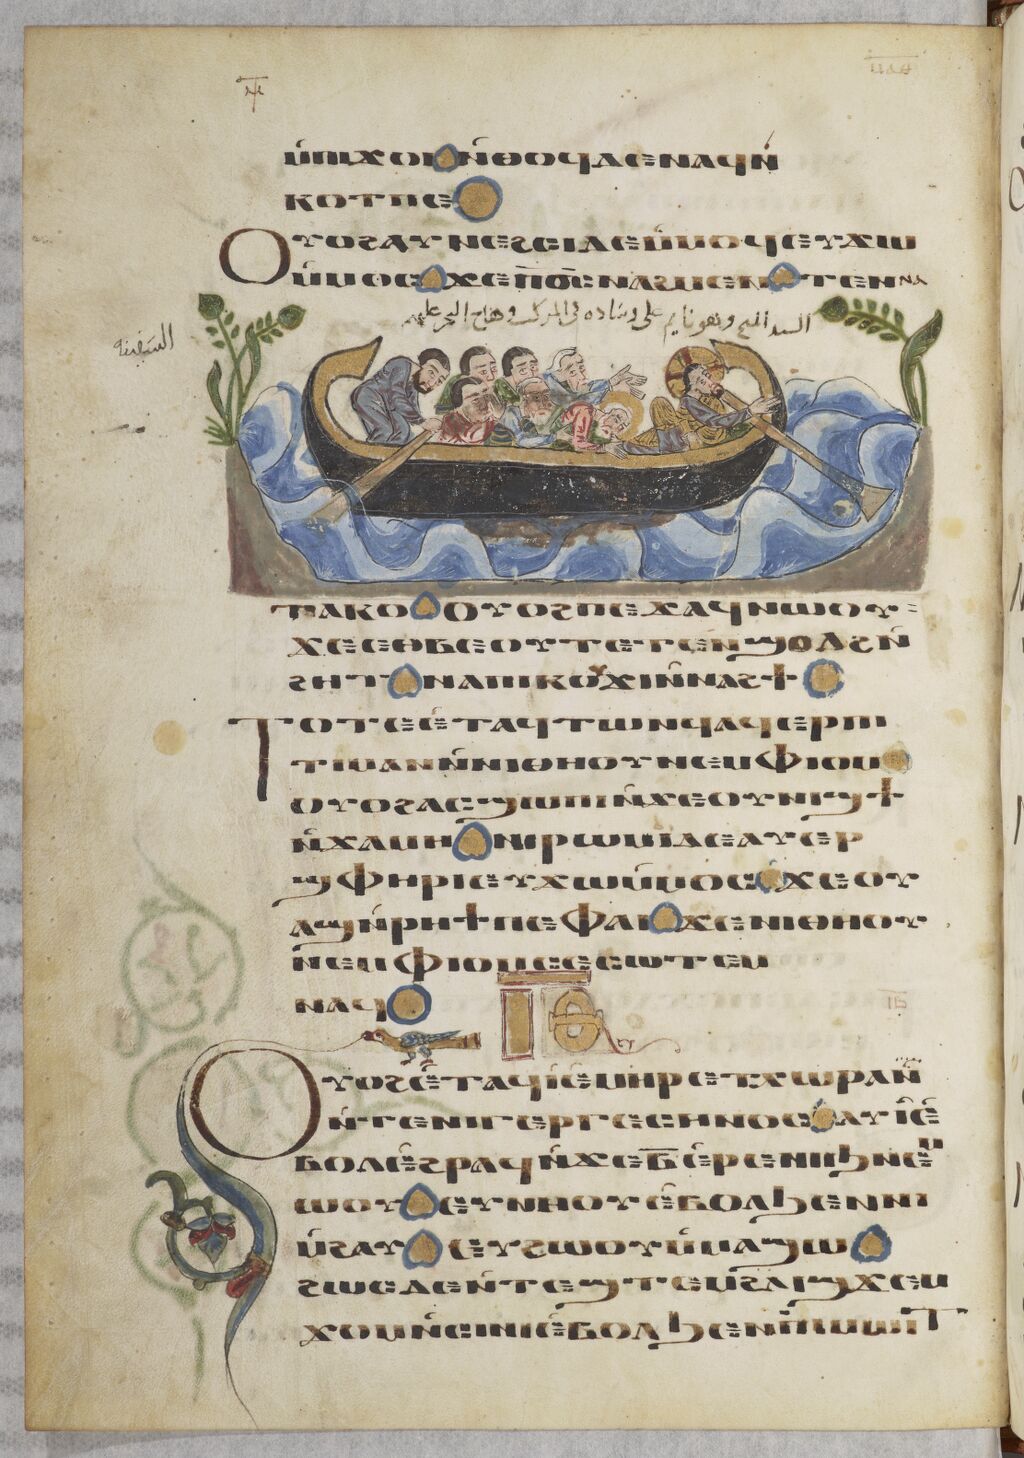 ⲙ̀ⲡⲓϫⲟⲓ ⲛ̀ⲑⲟϥ ⲇⲉ ⲛⲁϥⲛ̀
ⲕⲟⲧ ⲡⲉ
ⲟⲩⲟϩ ⲁⲩⲛⲉϩⲥⲓ ⲇⲉ ⲙ̀ⲙⲟϥ ⲉⲩϫⲱ
ⲙ̀ⲙⲟⲥ ϫⲉ ⲡϭⲥ̅ ⲛⲁϩⲙⲉⲛ ⲧⲉⲛⲛⲁ
السيد المسيح وهو نايم على وساده فى المركب وهاج البحر عليهم
السفينه
ⲧⲁⲕⲟ ⲟⲩⲟϩ ⲡⲉϫⲁϥ ⲛⲱⲟⲩ
ϫⲉ ⲉⲑⲃⲉ ⲟⲩ ⲧⲉⲧⲉⲛϣⲟⲗϩ ⲛ̀
ϩⲏⲧ ⲛⲁ ⲡⲓⲕⲟⲩϫⲓ ⲛ̀ⲛⲁϩϯ
ⲧⲟⲧⲉ ⲉ̀ⲧⲁϥⲧⲱⲛϥ ⲁϥⲉⲣⲉ̀ⲡⲓ
ⲧⲓⲙⲁⲛ ⲛ̀ⲛⲓⲑⲏⲟⲩ ⲛⲉⲙ ⲫⲓⲟⲙ
ⲟⲩⲟϩ ⲁⲥϣⲱⲡⲓ ⲛ̀ϫⲉ ⲟⲩⲛⲓϣϯ
ⲛ̀ϫⲁⲙⲏ ⲛⲓⲣⲱⲙⲓ ⲇⲉ ⲁⲩⲉⲣ
ϣⲫⲏⲣⲓ ⲉⲩϫⲱ ⲙ̀ⲙⲟⲥ ϫⲉ ⲟⲩ
ⲁϣ ⲛ̀ⲣⲏϯ ⲡⲉ ⲫⲁⲓ ϫⲉ ⲛⲓⲑⲏⲟⲩ
ⲛⲉⲙ ⲫⲓⲟⲙ ⲥⲉⲥⲱⲧⲉⲙ
ⲛⲁϥ
ⲓⲑ
ⲟⲩⲟϩ ⲉ̀ⲧⲁϥⲓ̀ ⲉ̀ⲙⲏⲣ ⲉ̀ⲧⲭⲱⲣⲁ ⲛ̀
ⲛ̀ⲧⲉ ⲛⲓⲅⲉⲣⲅⲉⲥⲏⲛⲟⲥ ⲁⲩⲓ̀ ⲉ̀
ⲃⲟⲗ ⲉ̀ϩⲣⲁϥ ⲛ̀ϫⲉ ⲃ̅ ⲉ̀ⲣⲉ ⲛⲓⲓϧ ⲛⲉⲙ
ⲱⲟⲩ ⲉⲩⲛⲏⲟⲩ ⲉ̀ⲃⲟⲗ ϧⲉⲛ ⲛⲓ
ⲙ̀ϩⲁⲩ ⲉⲩϩⲱⲟⲩ ⲙ̀ⲙⲁϣⲱ
ϩⲱⲥ ⲇⲉ ⲛ̀ⲧⲉϣⲧⲉⲙ ϩⲗⲓ ϣϫⲉⲙ
ϫⲟⲙ ⲛ̀ⲥⲓⲛⲓ ⲉ̀ⲃⲟⲗ ϧⲉⲛ ⲡⲓⲙⲱⲓⲧ